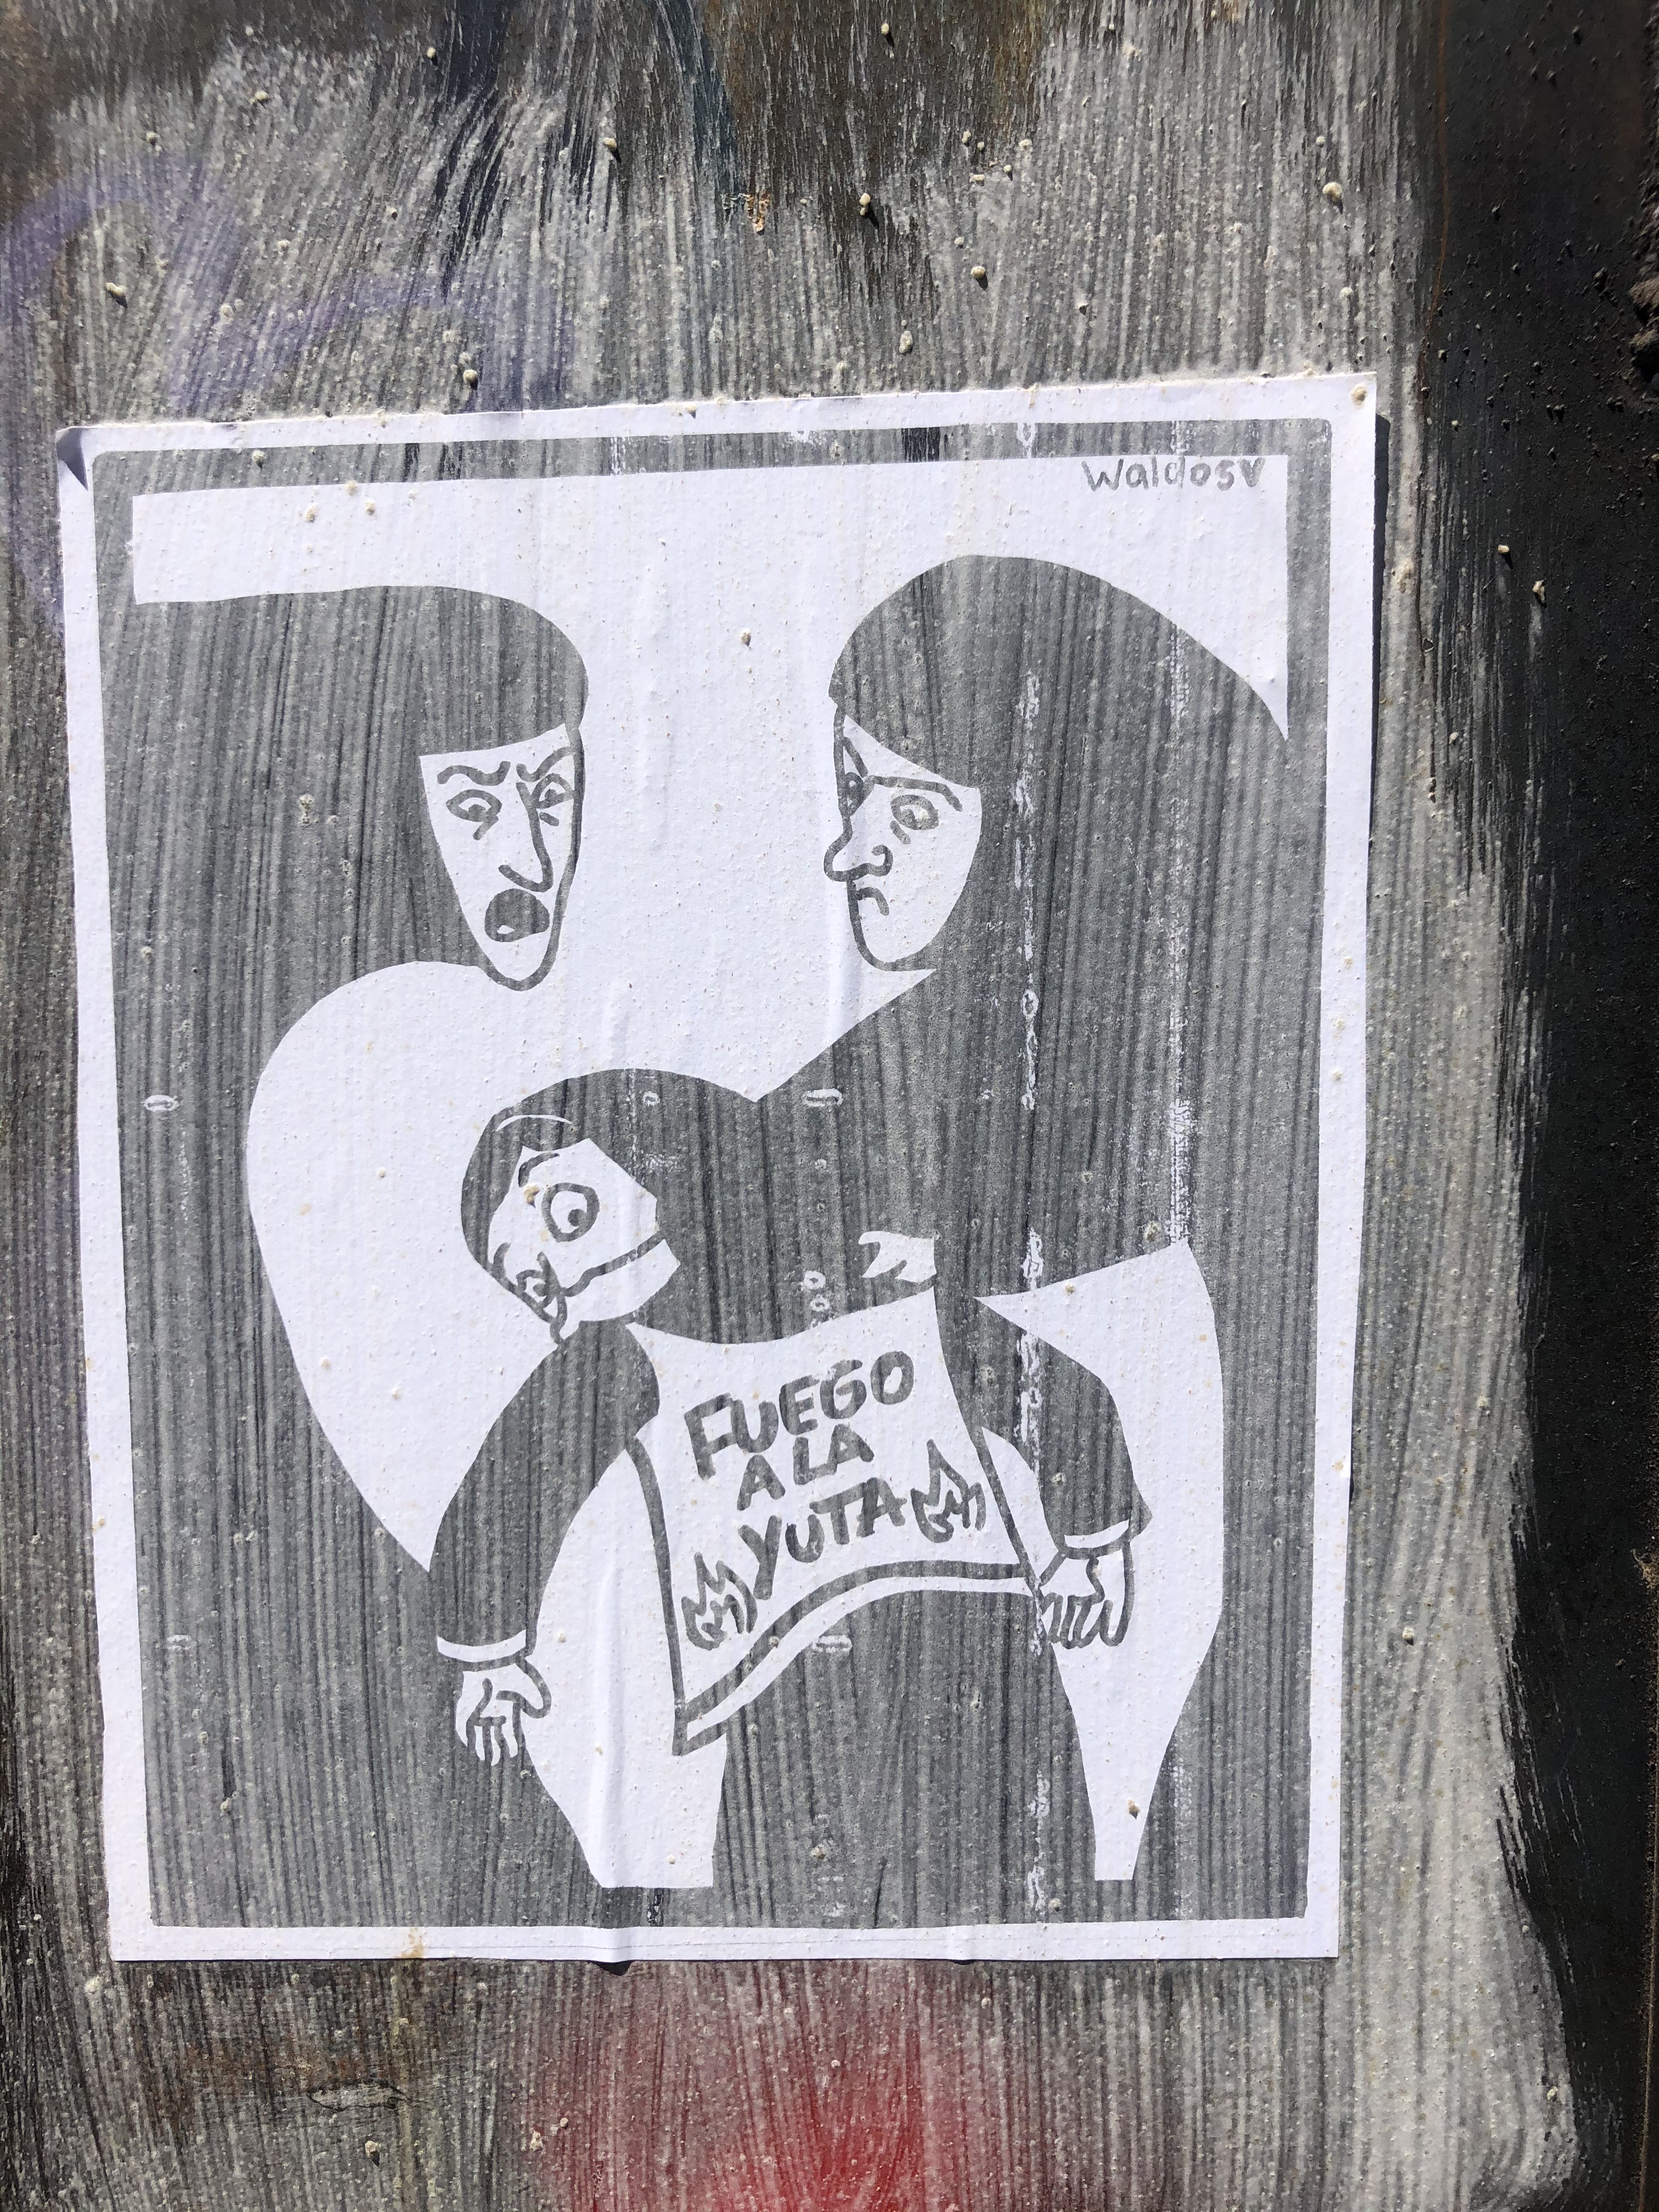 Waldosv
FUEGO
A LA
YUTA